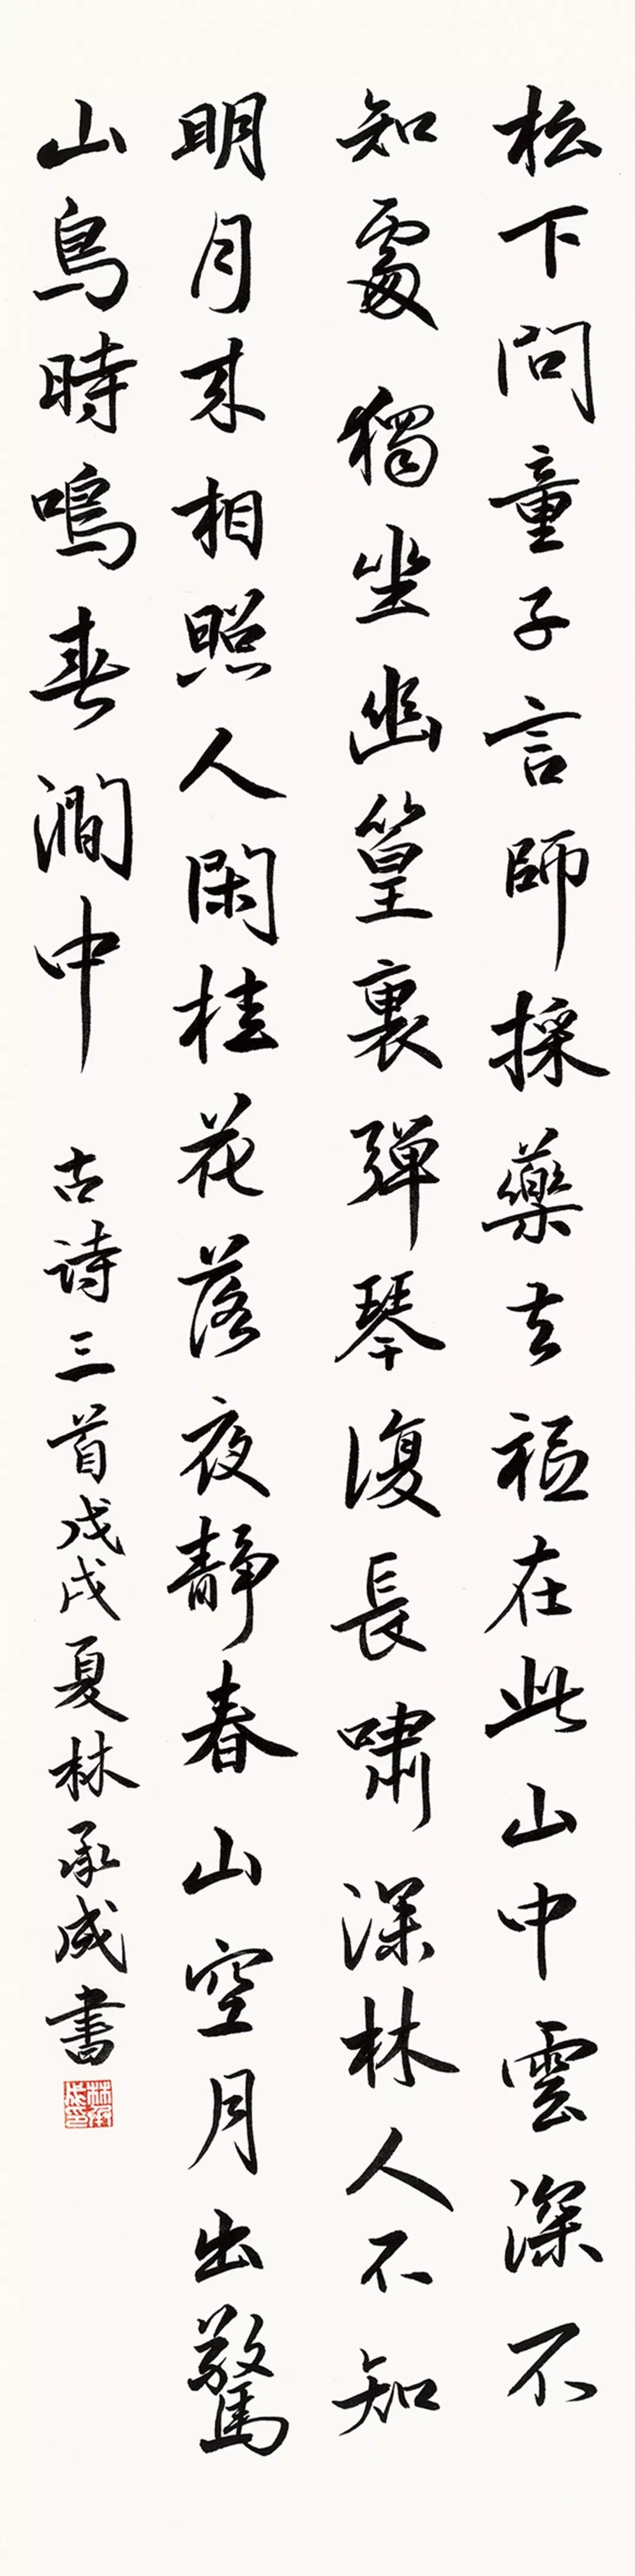 松下問童子言師採藥去祗在此山中雲深不
知處獨坐幽篁裏彈琴復長嘯深林人不知
明月来相照人閑桂花落夜靜春山空月出驚
山鳥時鳴春澗中 古詩三首戊戌夏林承成書
林承成印